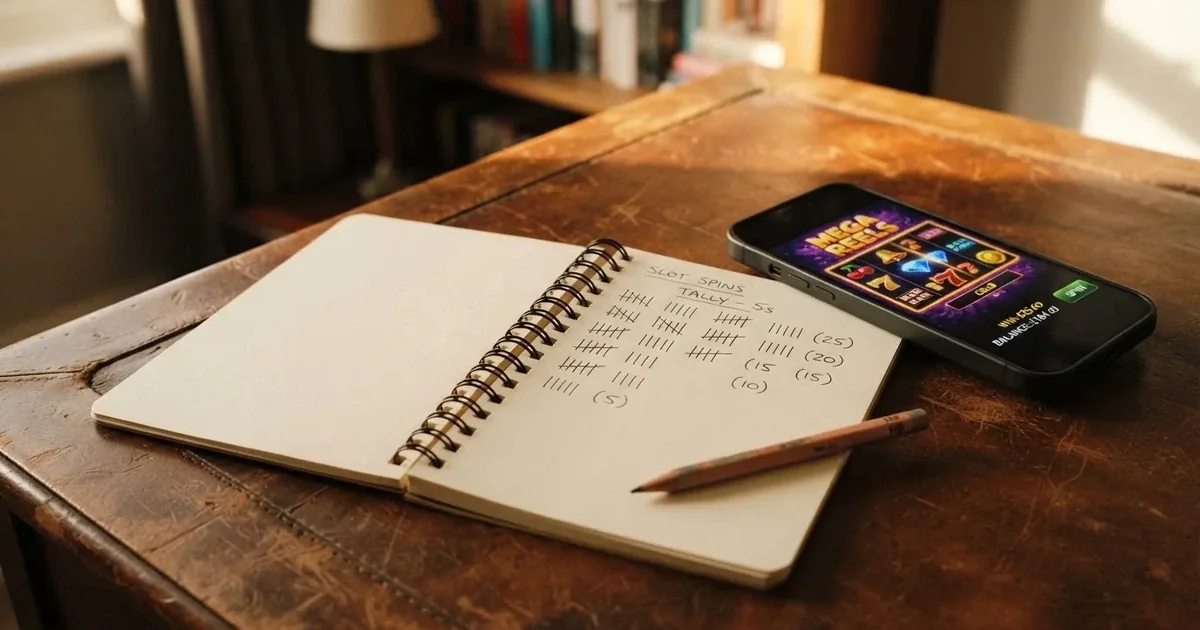 SLOT SPINS
TALLY - 5s
(25)
(20)
(15 (15)
(10)
(5)
MEGA
REELS
7 7 7
WIN:
BALANCE:
SPIN